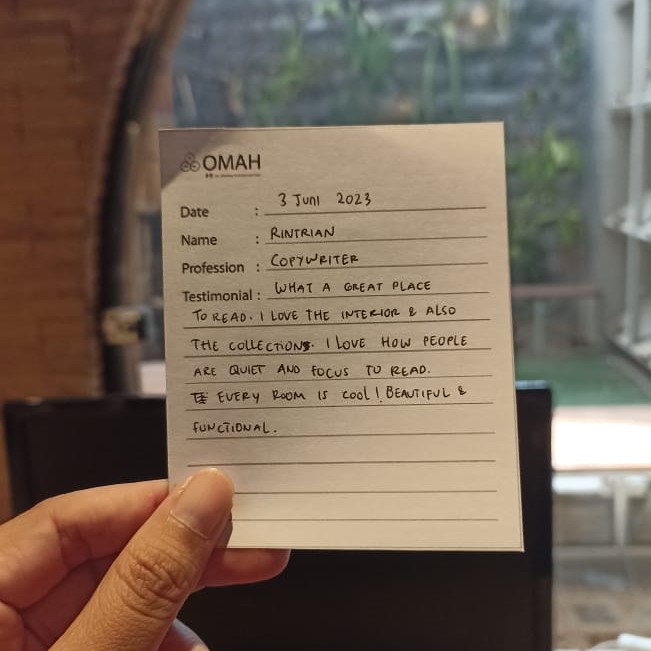 OMAH
Date : 3 JUNI 2023
Name : RINTRIAN
Profession : COPYWRITER
Testimonial : WHAT A GREAT PLACE
TO READ. I LOVE THE INTERIOR & ALSO
THE COLLECTIONS. I LOVE HOW PEOPLE
ARE QUIET AND FOCUS TO READ.
EVERY ROOM IS COOL! BEAUTIFUL &
FUNCTIONAL.